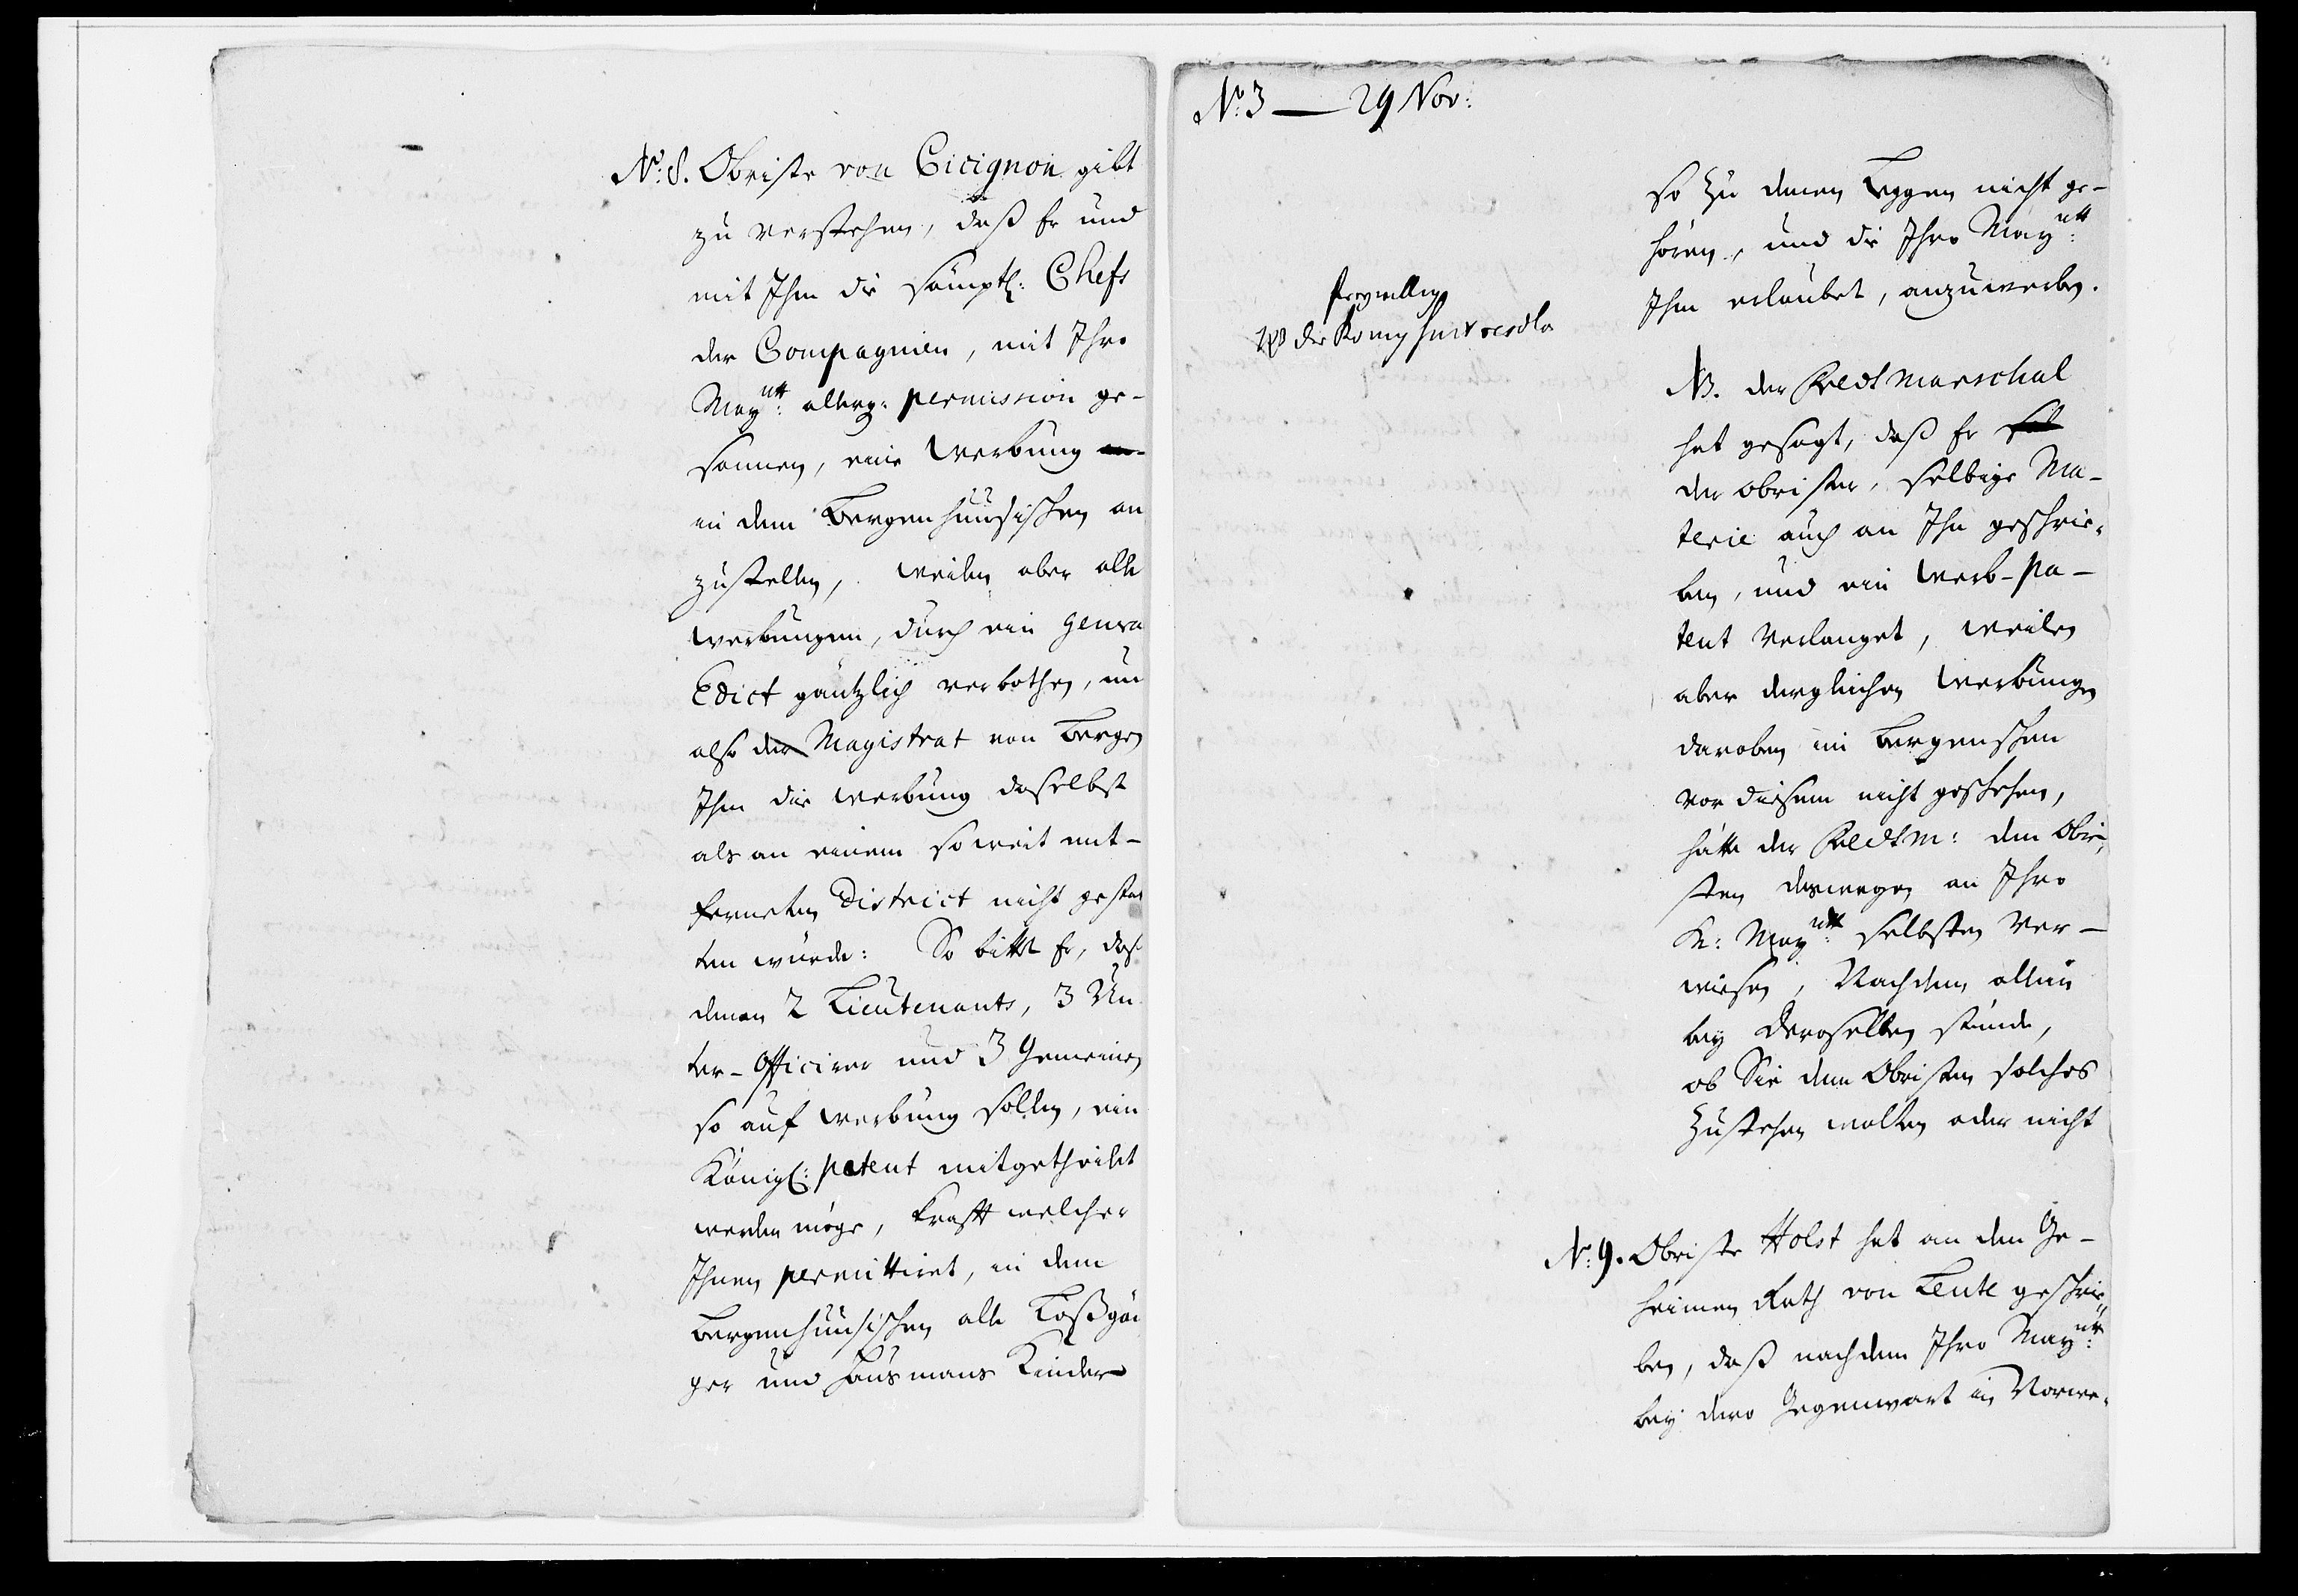 No: 8. Obriste von Cicignon gibt
zu verstehen, daß Er und
mit Ihm die sämptl: Chefs
der Compagnien, mit Ihro
Maytt: allerg: permission ge-
sonnen, eine Werbung
in dem Bergenhuusischen an
zustellen, weilen aber alle
Werbungen, durch ein Genera
Edict gäntzlich verbothen, un
also der Magistrat von Bergen
Ihm die Werbung daselbst
als an einem so weit ent-
ferneten District nicht gestat
ten würde: So bittet Er, daß
denen 2 Lieutenants, 3 Un
ter-Officirer und 3 Gemeinen
so auf Werbung sollen, ein
Königl: patent mitgetheilet
werden möge, krafft welcher
Ihnen permittiret, in dem
Bergenhuusischen alle Loßgän
ger und Hausmans Kinder
No: 3 — 29 Nov:
so zu denen Leggen nicht ge-
hören, und die Ihro Maytt:
Ihm erlaubet, anzuwerben.
freywillig
der König
NB. der Feldtmarschal
hat gesagt, daß Er
der Obrister, selbige Ma-
terie auch an Ihn geschrie-
ben, und ein Werb-pa-
tent verlanget, weilen
aber dergleichen Werbungen
daroben im Bergenschen
vor diesem nicht geschehen,
hätte der Feldtm: den Obri-
sten deswegen an Ihro
K: Maytt: selbsten ver-
wiesen, Nachdem allein
bey Deroselben stünde,
ob Sie dem Obristen solches
zustehen wolten oder nicht
No: 9. Obriste Holst hat an den Ge-
heimen Rath von Lente geschrie-
ben, daß nachdem Ihro Maytt:
bey dero Gegenwart in Norwe-